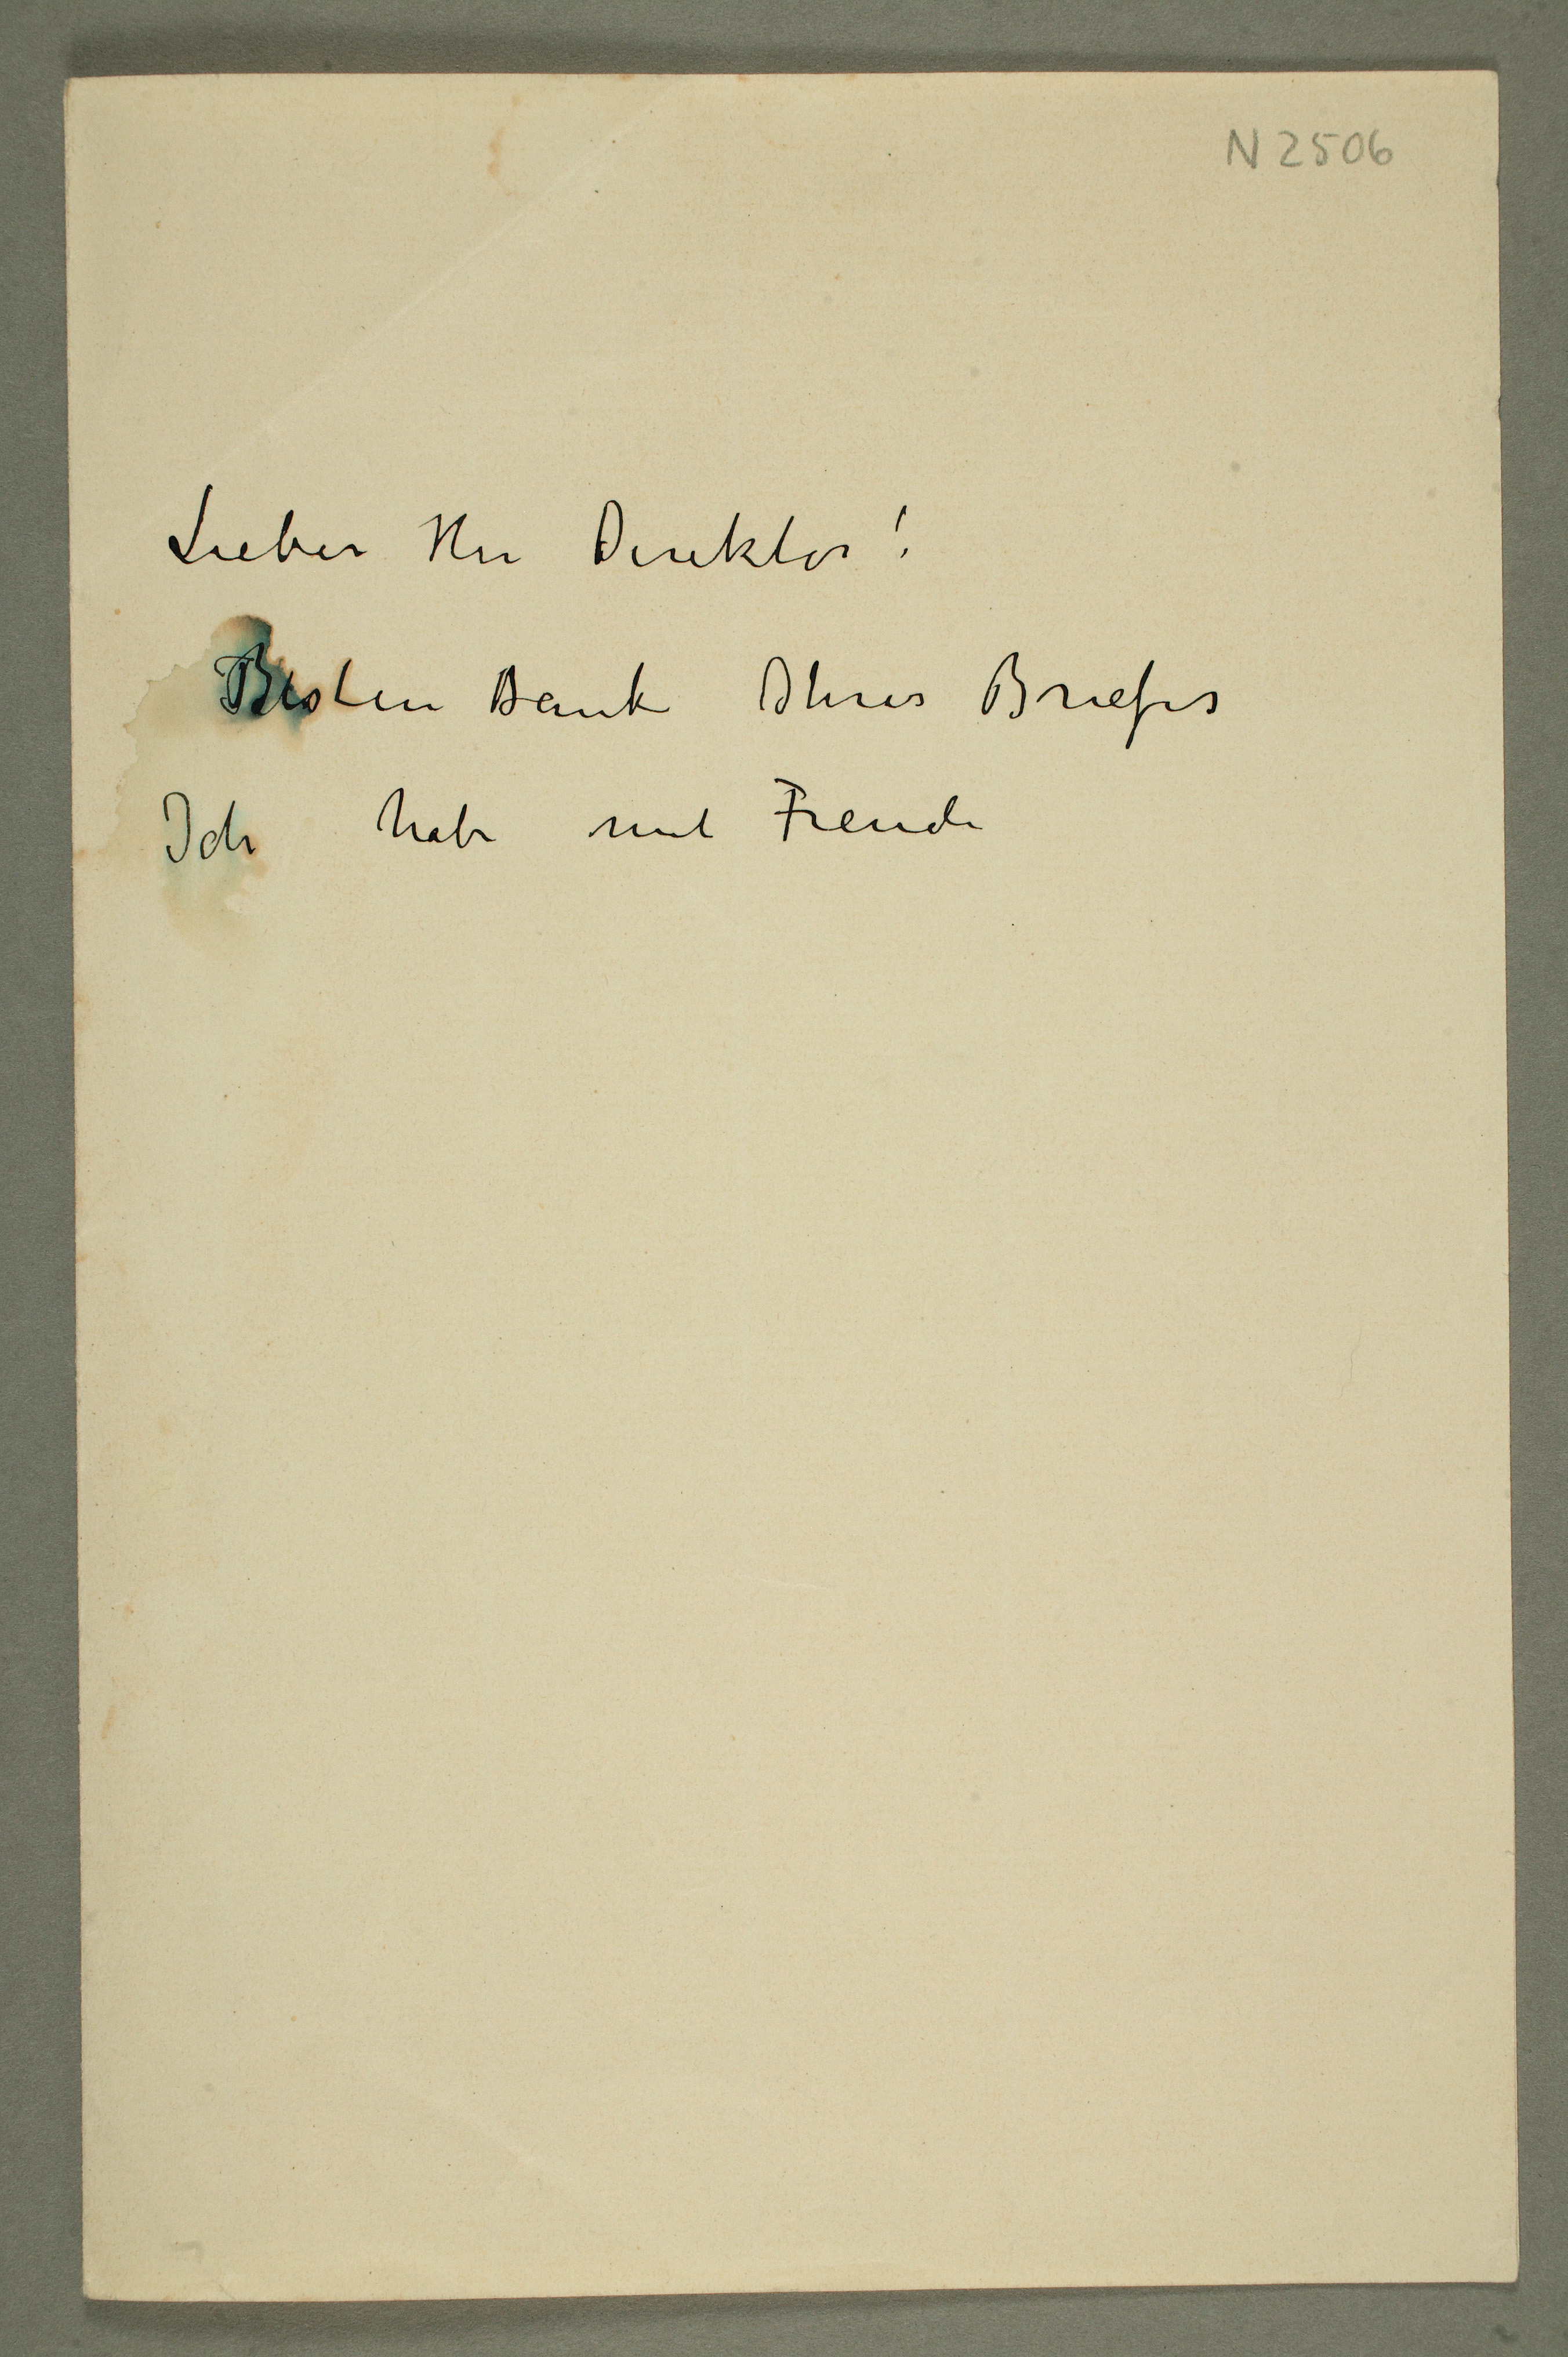 N 2506
Lieber Herr Direktor!
Besten Dank Ihres Briefes
Ich habe mit Freude